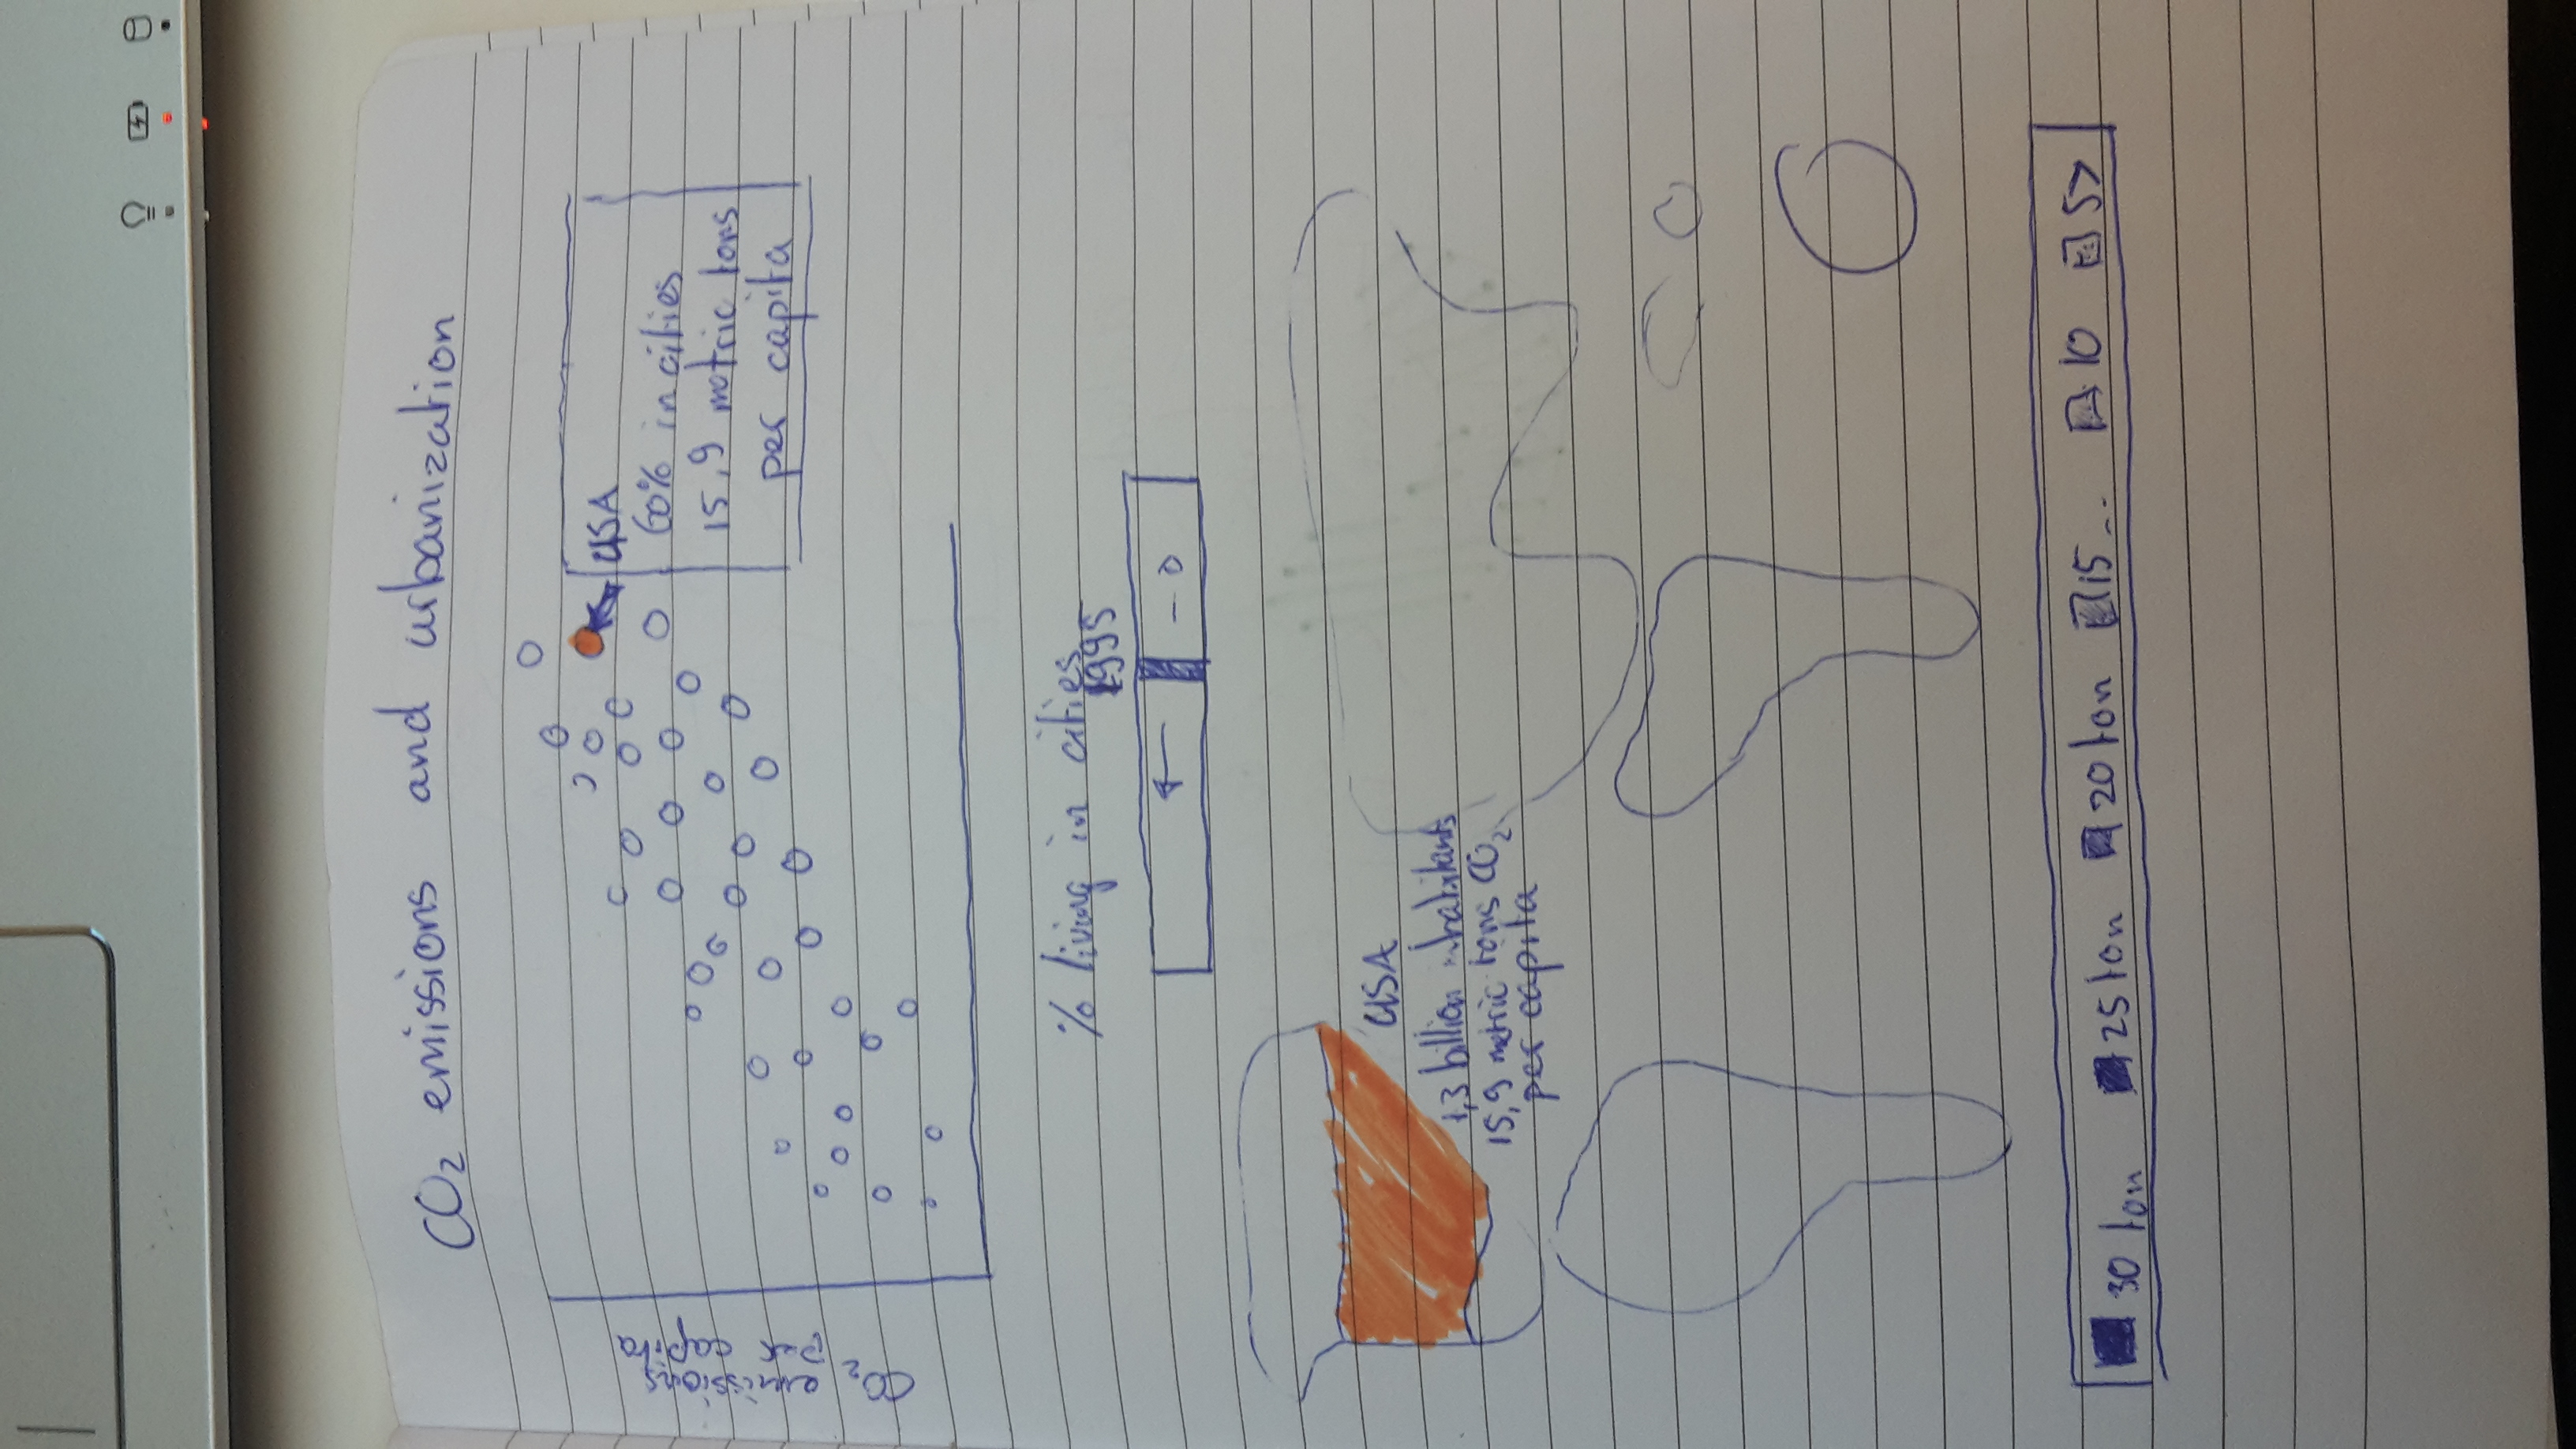 CO₂ emissions and urbanization
CO₂ emissions
per capita
USA
60% in cities
15,9 metric tons
per capita
% living in cities
1995
USA
1,3 billion inhabitants
15,9 metric tons CO₂
per capita
30 ton 25 ton 20 ton 15... 10 5>